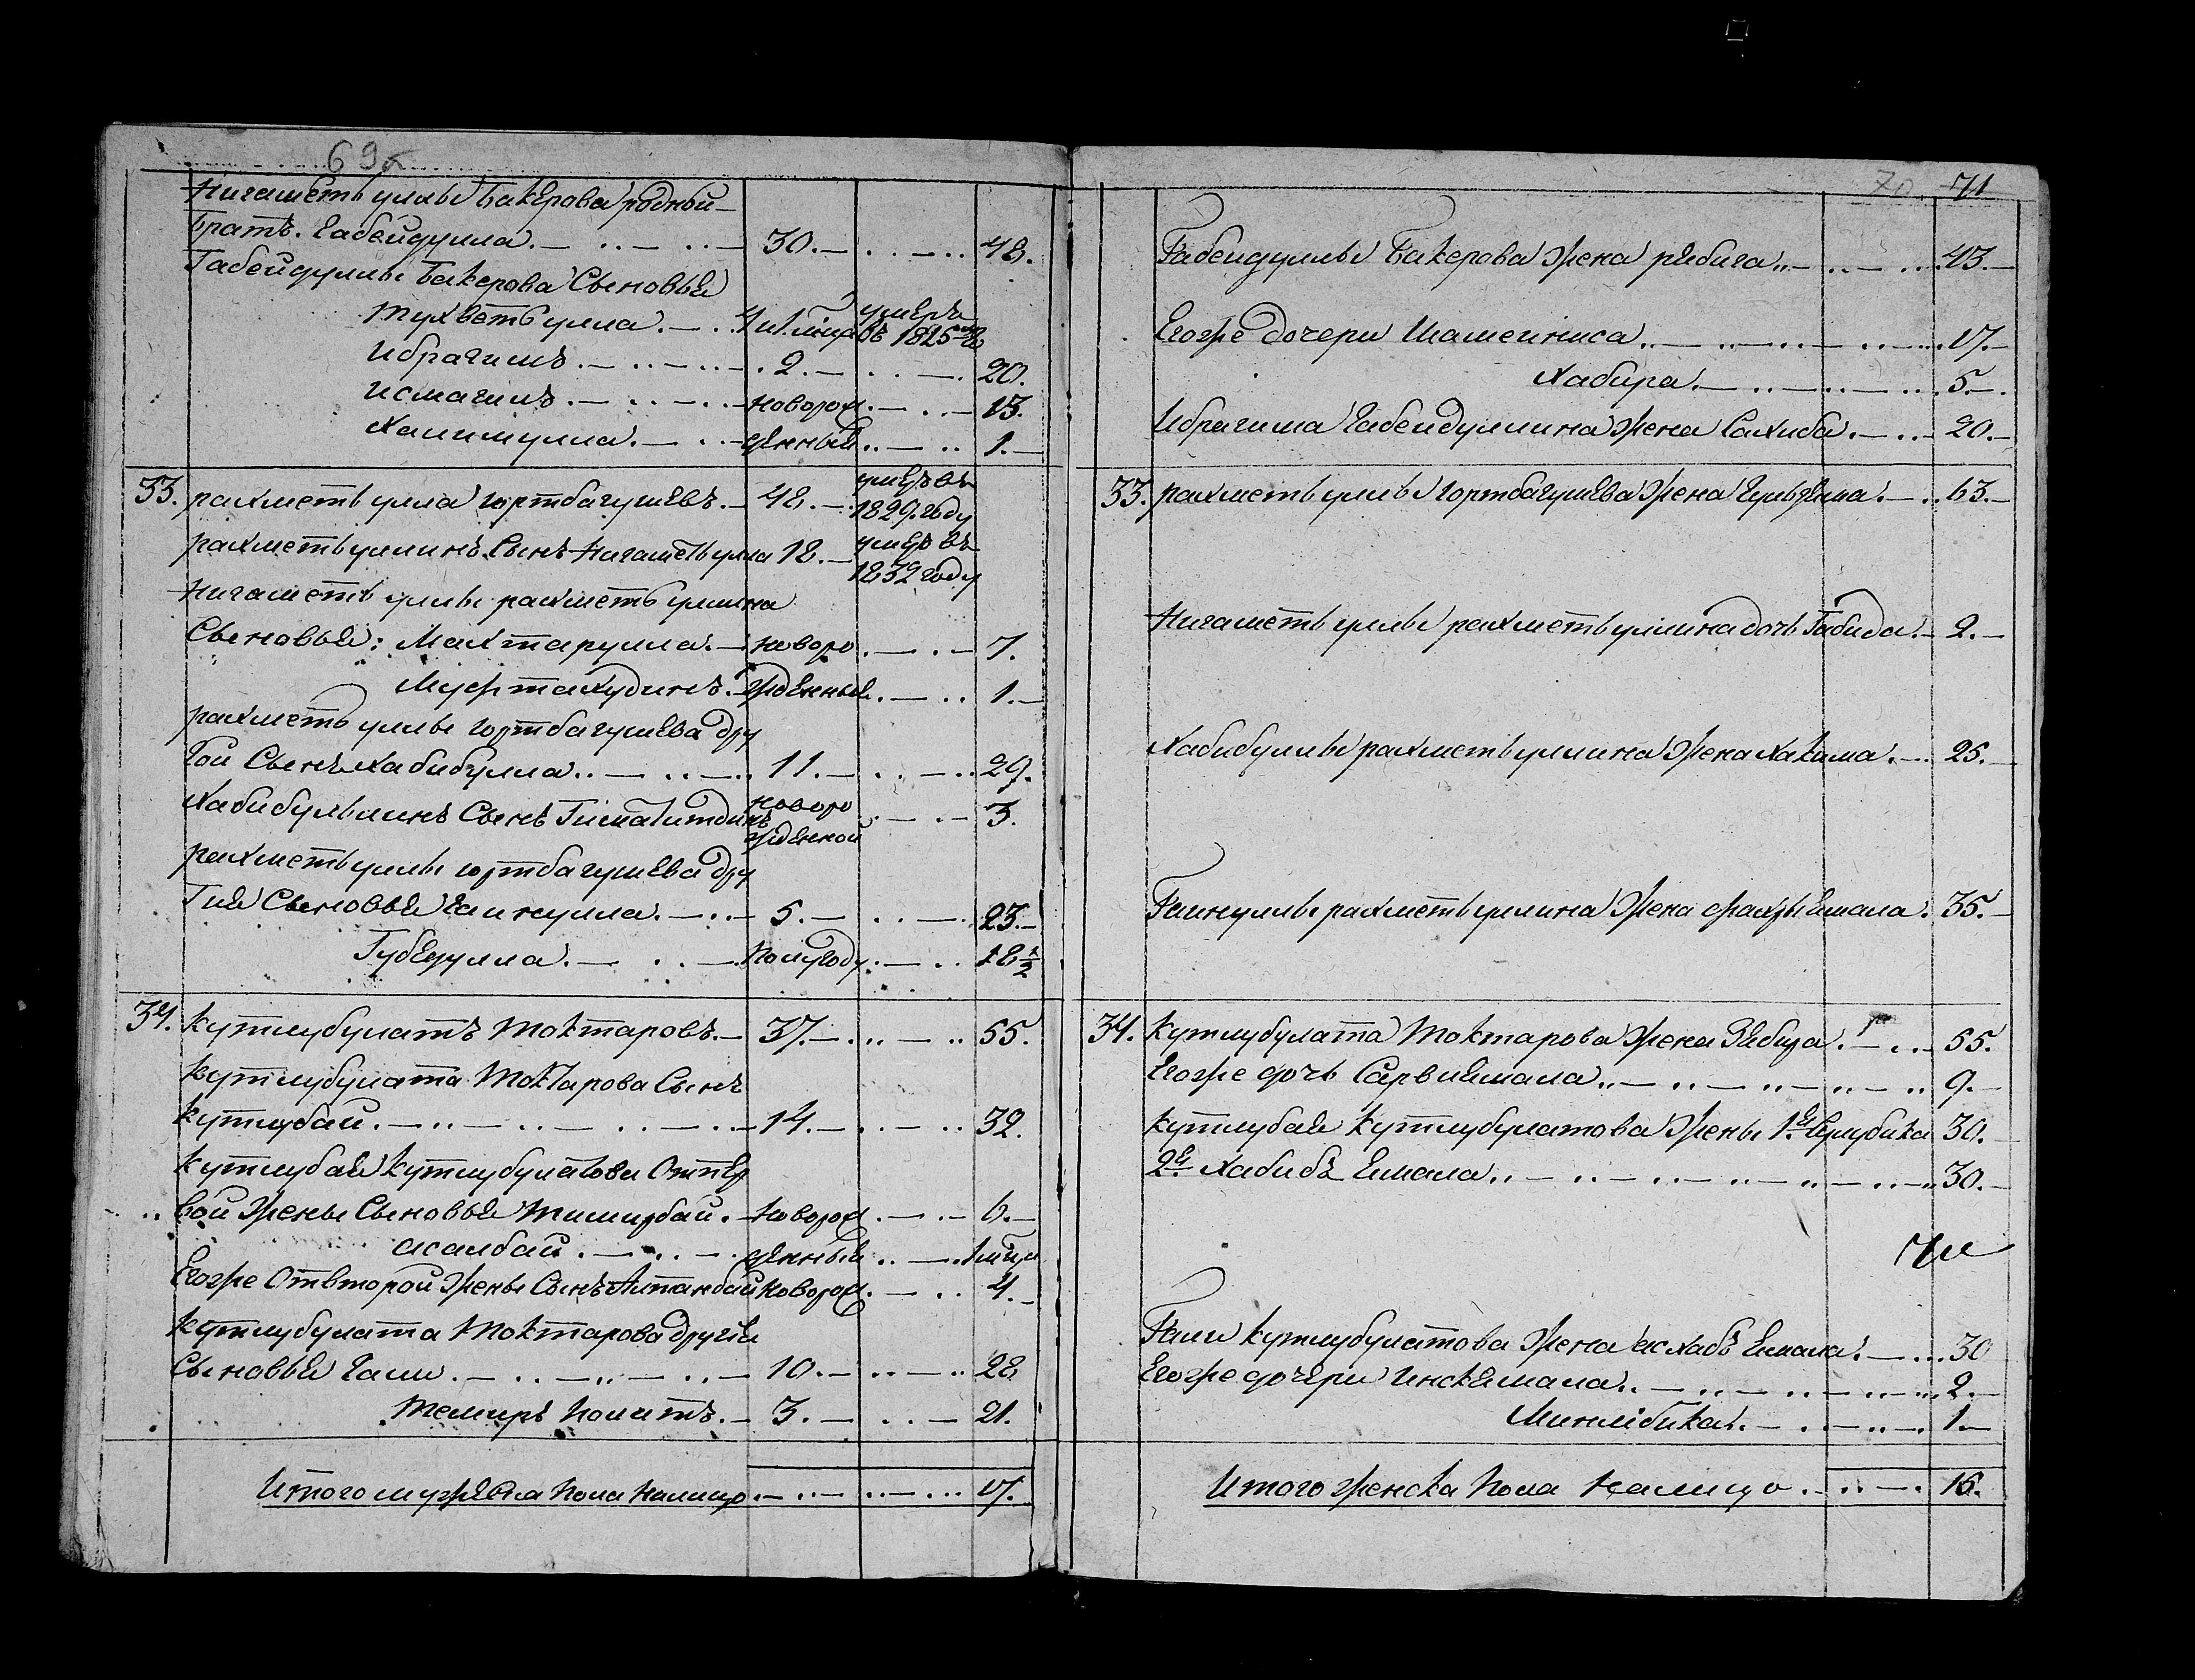 69
Нигаметь уллы Бакерова родной
Братъ. Габейдулла. 30. 48.
Габейдуллы Бакерова Сыновья
Тухветь улла. умеръ въ 1825
Ибрагимъ. 2. 20.
Исмагилъ. новорож 13.
Халимулла. денныя 1.
33. рахметь улла юртбагушевъ. 48. умеръ въ 1829. году
рахметь уллинъ Сынъ Нигаметь улла 18. умеръ въ 1832 году
Нигаметь уллы рахметь уллина
Сыновья: Махтарулла. новоро 7.
Мифтахудинъ. жденныя 1.
рахметь уллы юртбагушева дру
гой Сынъ Хабибулла 11. 29.
Хабибульлинъ Сынъ новоро жденной 3.
рахметь уллы юртбагушева дру
гия Сыновья Гайнулла. 5. 23.
Губейдулла. полугоду 18 1/2
34. Кутлубулатъ Токтаровъ. 37. 55.
Кутлубулата Токтарова Сынъ
Кутлубай. 14. 32.
Кутлубая Кутлубулатова Отпер
вой жены Сыновья Тимирбай. новорож 6.
Асалбай. денныя
Егоже Отвторой жены Сынъ Алтанбай новорож. 4.
Кутлубулата Токтарова другия
Сыновья Гали. 10. 28
Темиръ Полатъ. 3. 21.
Итого мужеска пола налицо 17.
70 71
Габейдуллы Бакерова жена рябига 43.
Егоже дочери Шамсиниса 17.
Хабира. 5.
Ибрагима Габейдуллина жена Сахиба. 20.
33. рахметь уллы юртбагушева жена 63.
Нигаметь уллы рахметь уллина дочь Габида. 2.
Хабибуллы рахметь уллина жена Хакима. 25.
Гайнуллы рахметь уллина жена Фахрыямала. 35.
34. Кутлубулата Токтарова жена Зябида. 55.
Егоже дочь Сарвиямала 9.
Кутлубая Кутлубулатова жены 1я Сулубика 30.
2я Хабибъ Ямала 30.
Гали Кутлубулатова жена асхабъ Ямала. 30
Егоже дочери Инсямала 2.
Минлибика. 1.
Итого женска пола налицо 15.